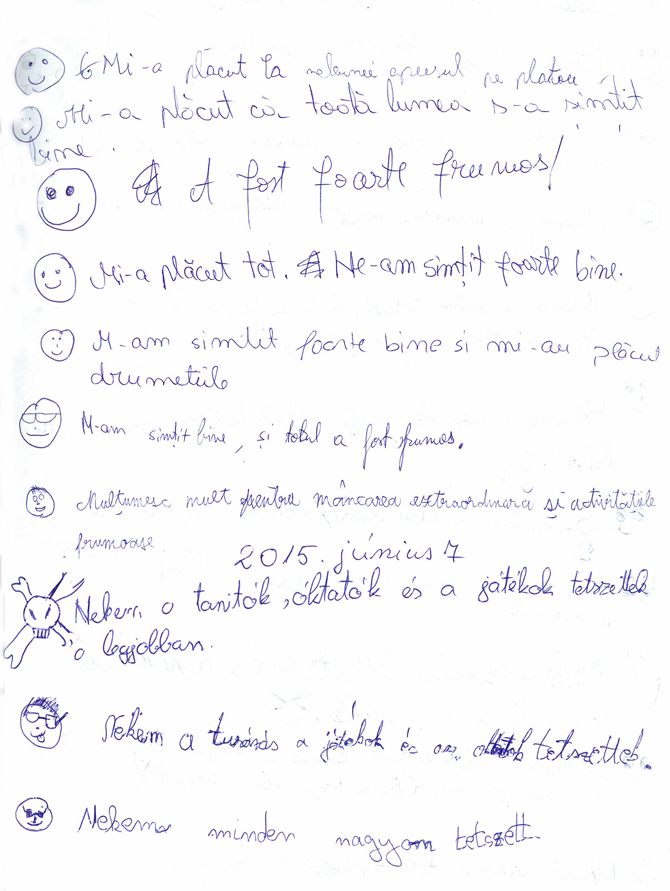 Mi-a plăcut la apusul pe platou
Mi-a plăcut că toată lumea s-a simțit
bine.
A fost foarte frumos!
Mi-a plăcut tot. Ne-am simțit foarte bine.
M-am simtit foarte bine si mi-au plăcut
drumetiile
M-am simțit bine, și totul a fost frumos.
Mulțumesc mult pentru mâncarea extraordinară și activitățiile
frumoase
2015. június 7
Nekem a tanitók, óktatók és a játékok tetszettek
a legjobban.
Nekem a turázás a játékok és az tetszettek.
Nekem minden nagyon tetszett.